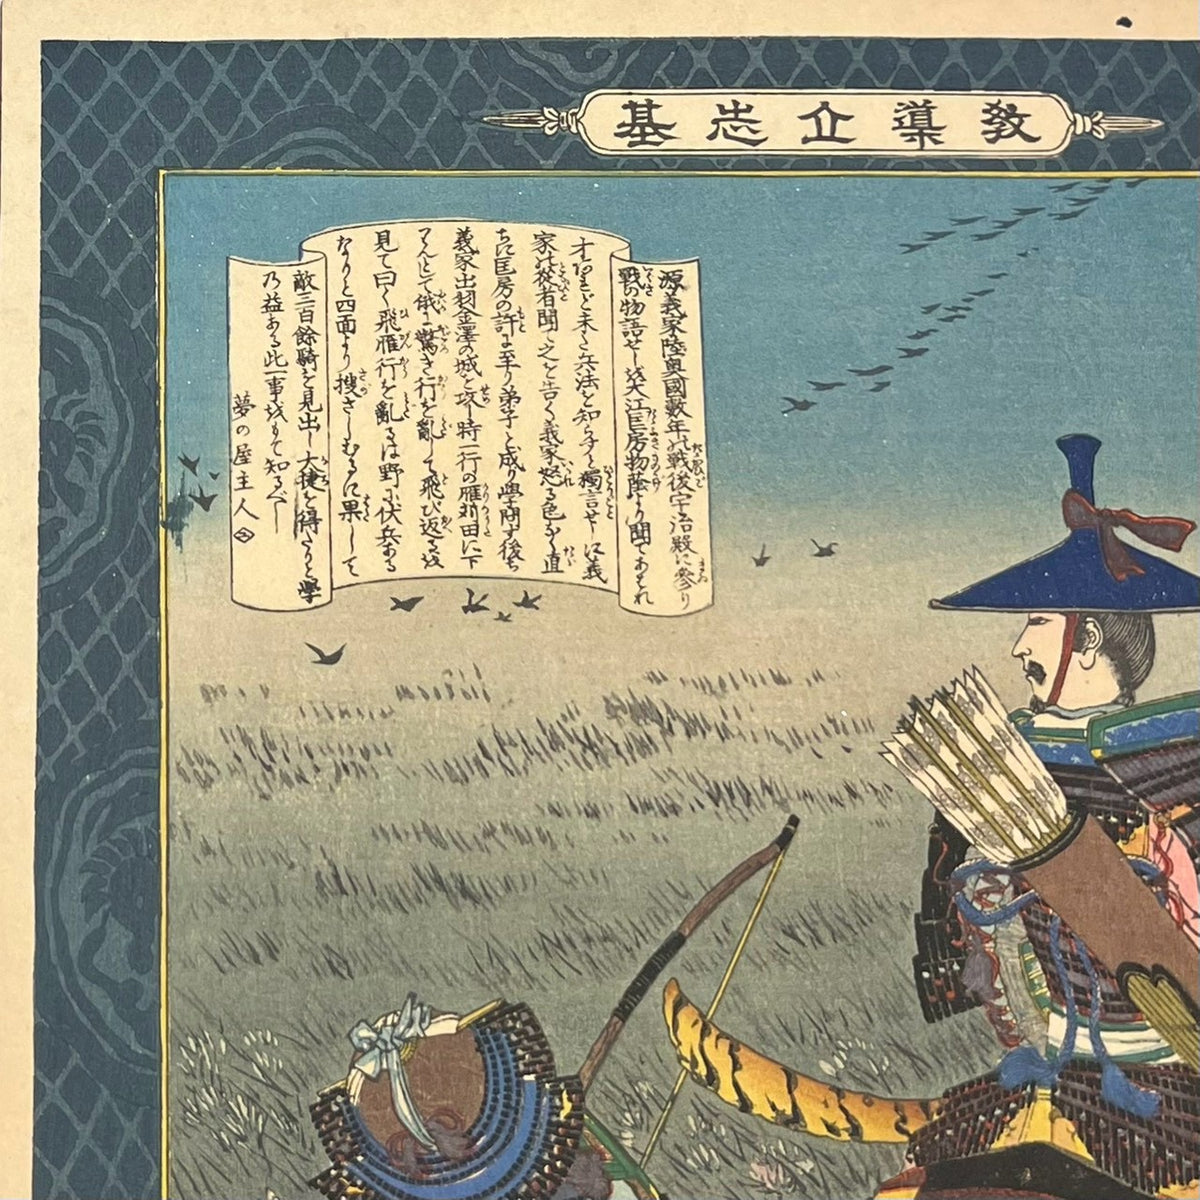 教導立志基
源義家陸奥國數年の戦後宇治殿に参り
戦の物語せしを大江匡房物蔭より聞てあはれ
才あれど未だ兵法を知らずと獨言せしに義
家の従者聞て之を告ぐ義家怒る色なく直
ちに匡房の許に至り弟子と成り學問す後ち
義家出羽金澤の城を攻し時一行の雁苅田に下
らんとて俄に驚き行を亂して飛び返るを
見て曰く飛雁行を亂るは野に伏兵ある
なりと四面より捜さしむるに果して
敵三百餘騎を見出し大捷を得たりと學
乃益ある此一事をもて知るべし
夢の屋主人